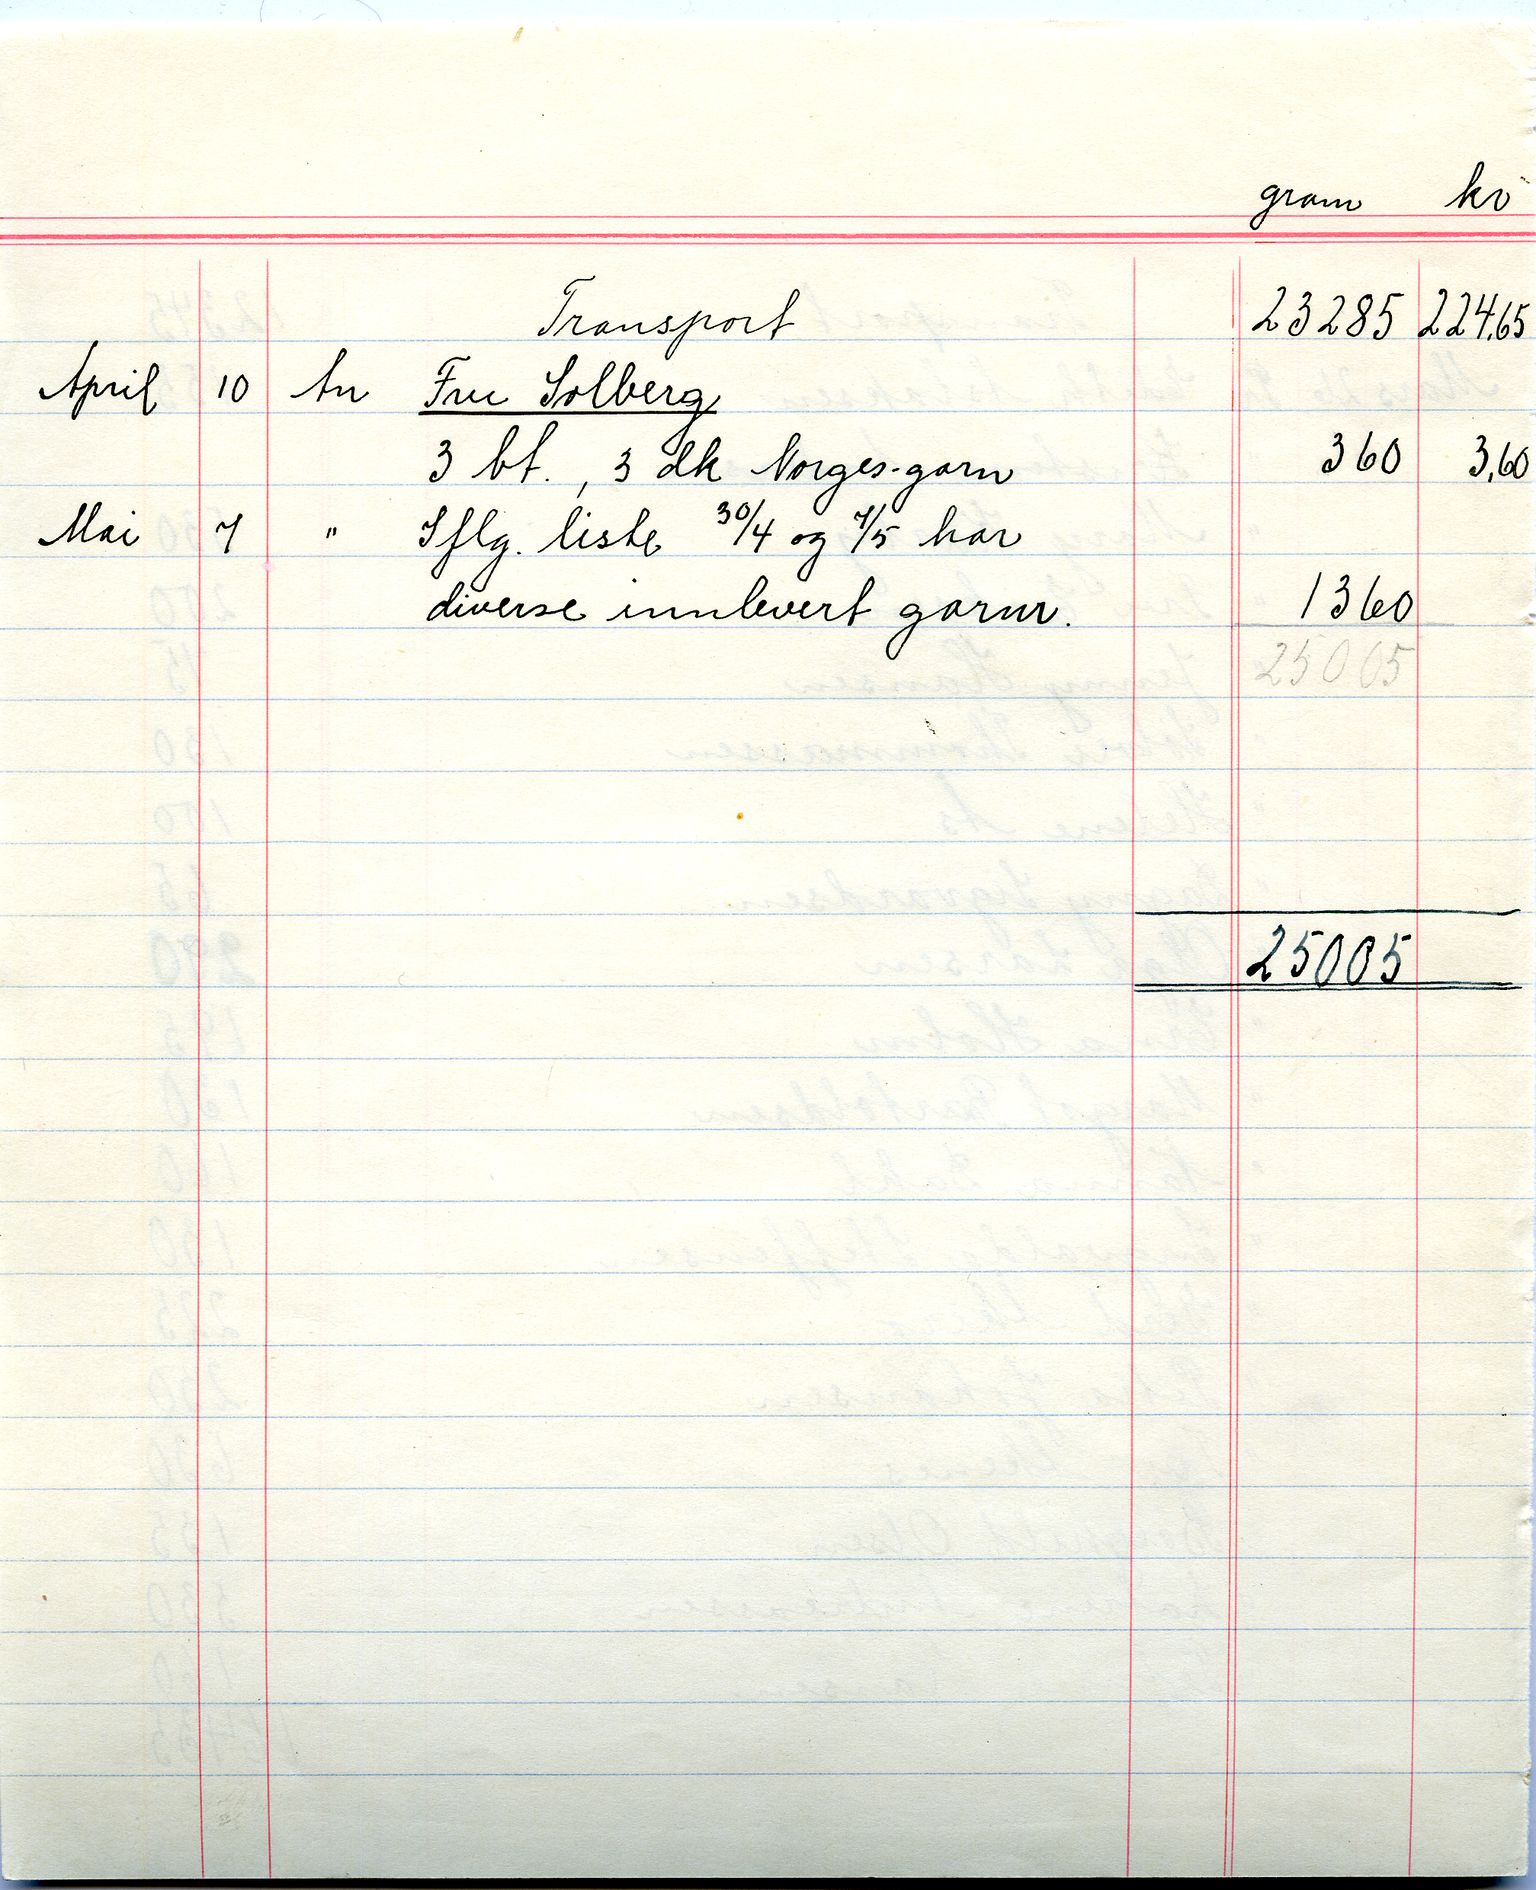 gram kr
Transport 23285 224,65
April 10 An Fru Solberg
3 bt., 3 dk Norges-garn 360 3,60
Mai 7 " Iflg. liste 30/4 og 7/5 har
diverse innlevert garn. 1360
25005
25005